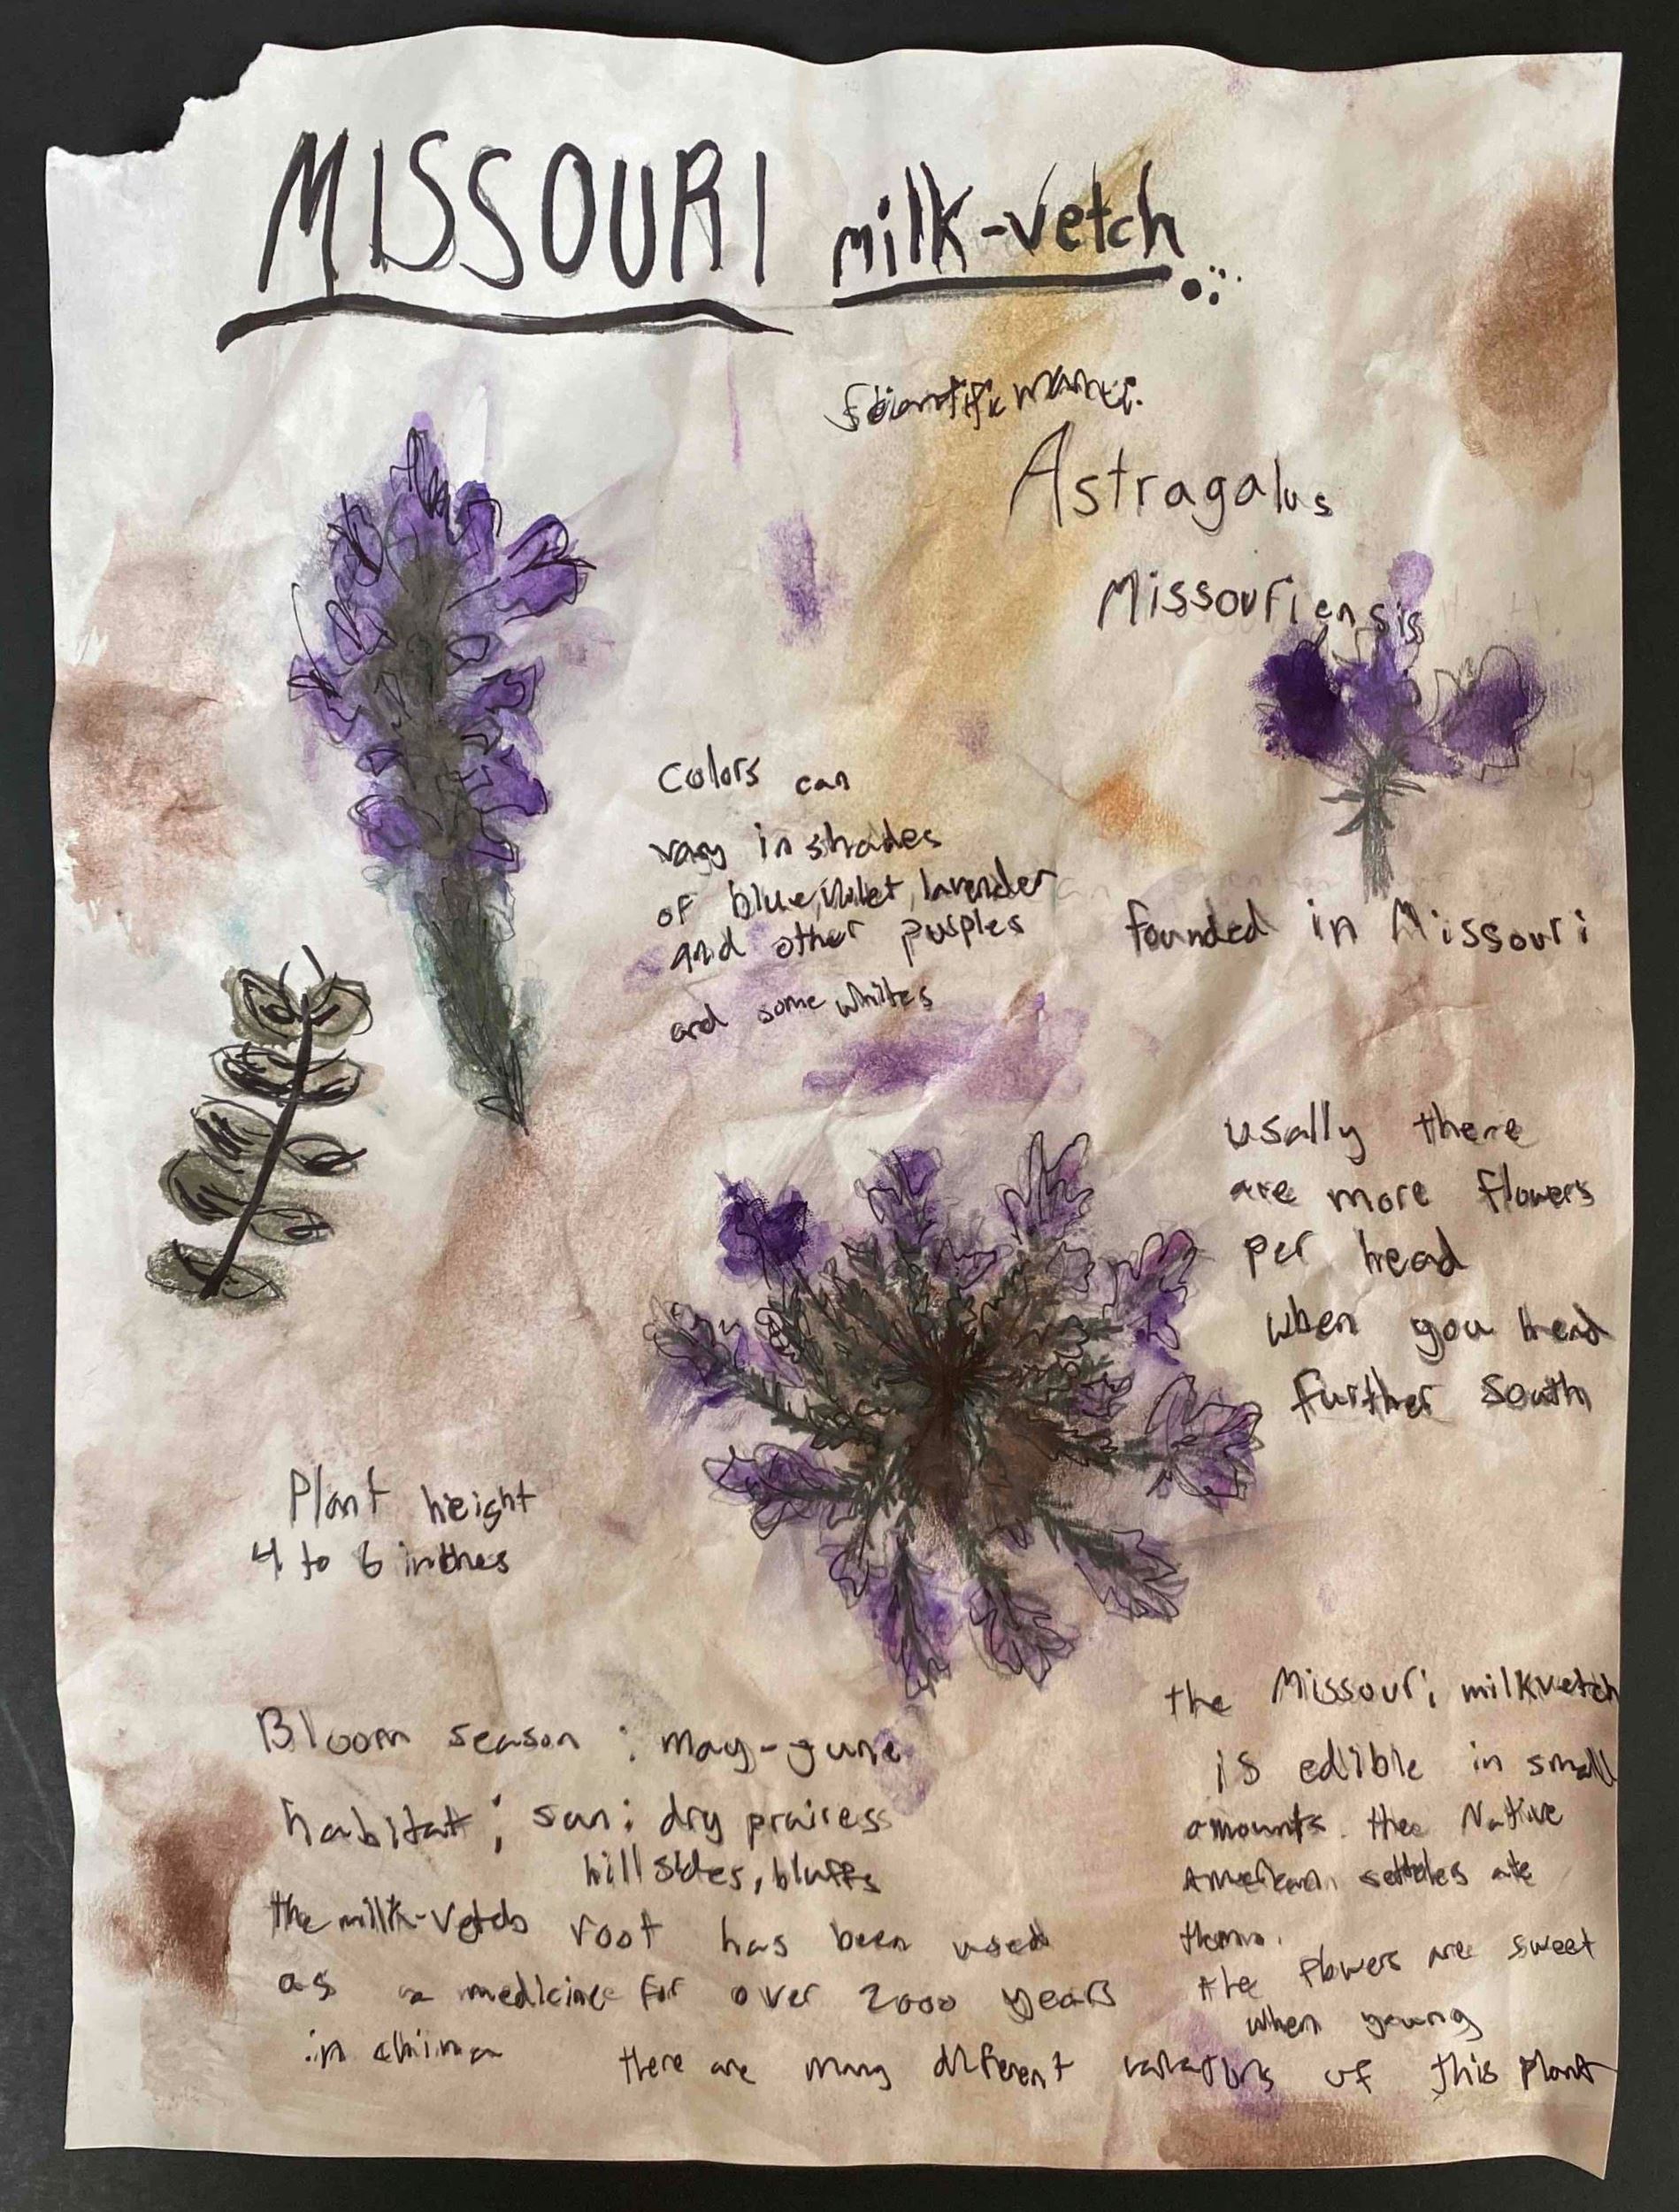 MISSOURI milk-vetch
Scientific name:
Astragalus
Missouriensis
Colors can
vary in shades
of blue, violet, lavender
and other purples
and some whites
founded in Missouri
usally there
are more flowers
per head
when you head
further south
Plant height
4 to 6 inches
Bloom season : may-june
habitat ; sun; dry prairess
hillsides, bluffs
the milk-vetch root has been used
as a medicine for over 2000 years
in china
the Missouri milkvetch
is edible in small
amounts. the Native
American settlers ate
them.
the flowers are sweet
when young
there are many different of this plant